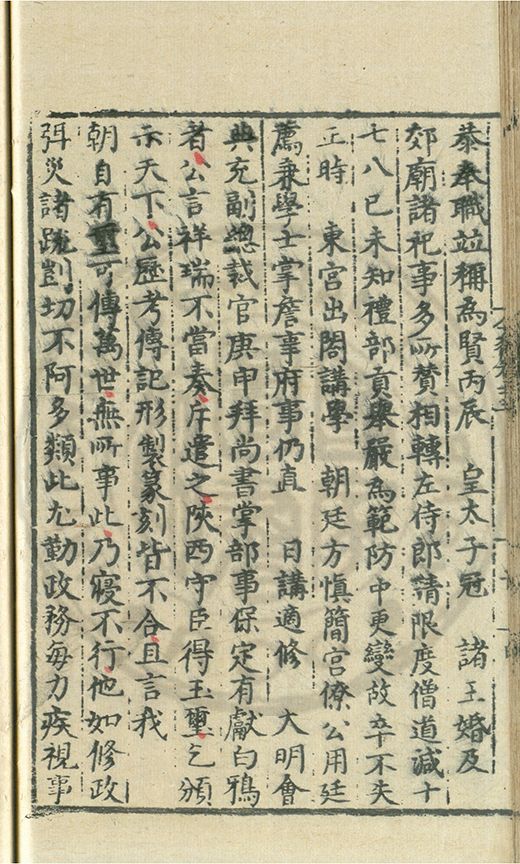 恭奉職並稱為賢丙辰　皇太子冠　諸王婚及
郊廟諸祀事多所贊相轉左侍郎請限度僧道減十
七八已未知禮部貢舉嚴為範防中更變故卒不失
正時　東宮出閤講學　朝廷方慎簡宮僚公用廷
薦兼學士掌詹事府事仍直　日講適修　大明會
典充副總裁官庚申拜尚書掌部事保定有獻白鴉
者公言祥瑞不當奏斥遣之陝西守臣得玉璽乞頒
示天下公歷考傳記形製篆刻皆不合且言我
朝自有璽可傳萬世無所事此乃寢不行他如修政
弭災諸疏剴切不阿多類此尤勤政務每力疾視事